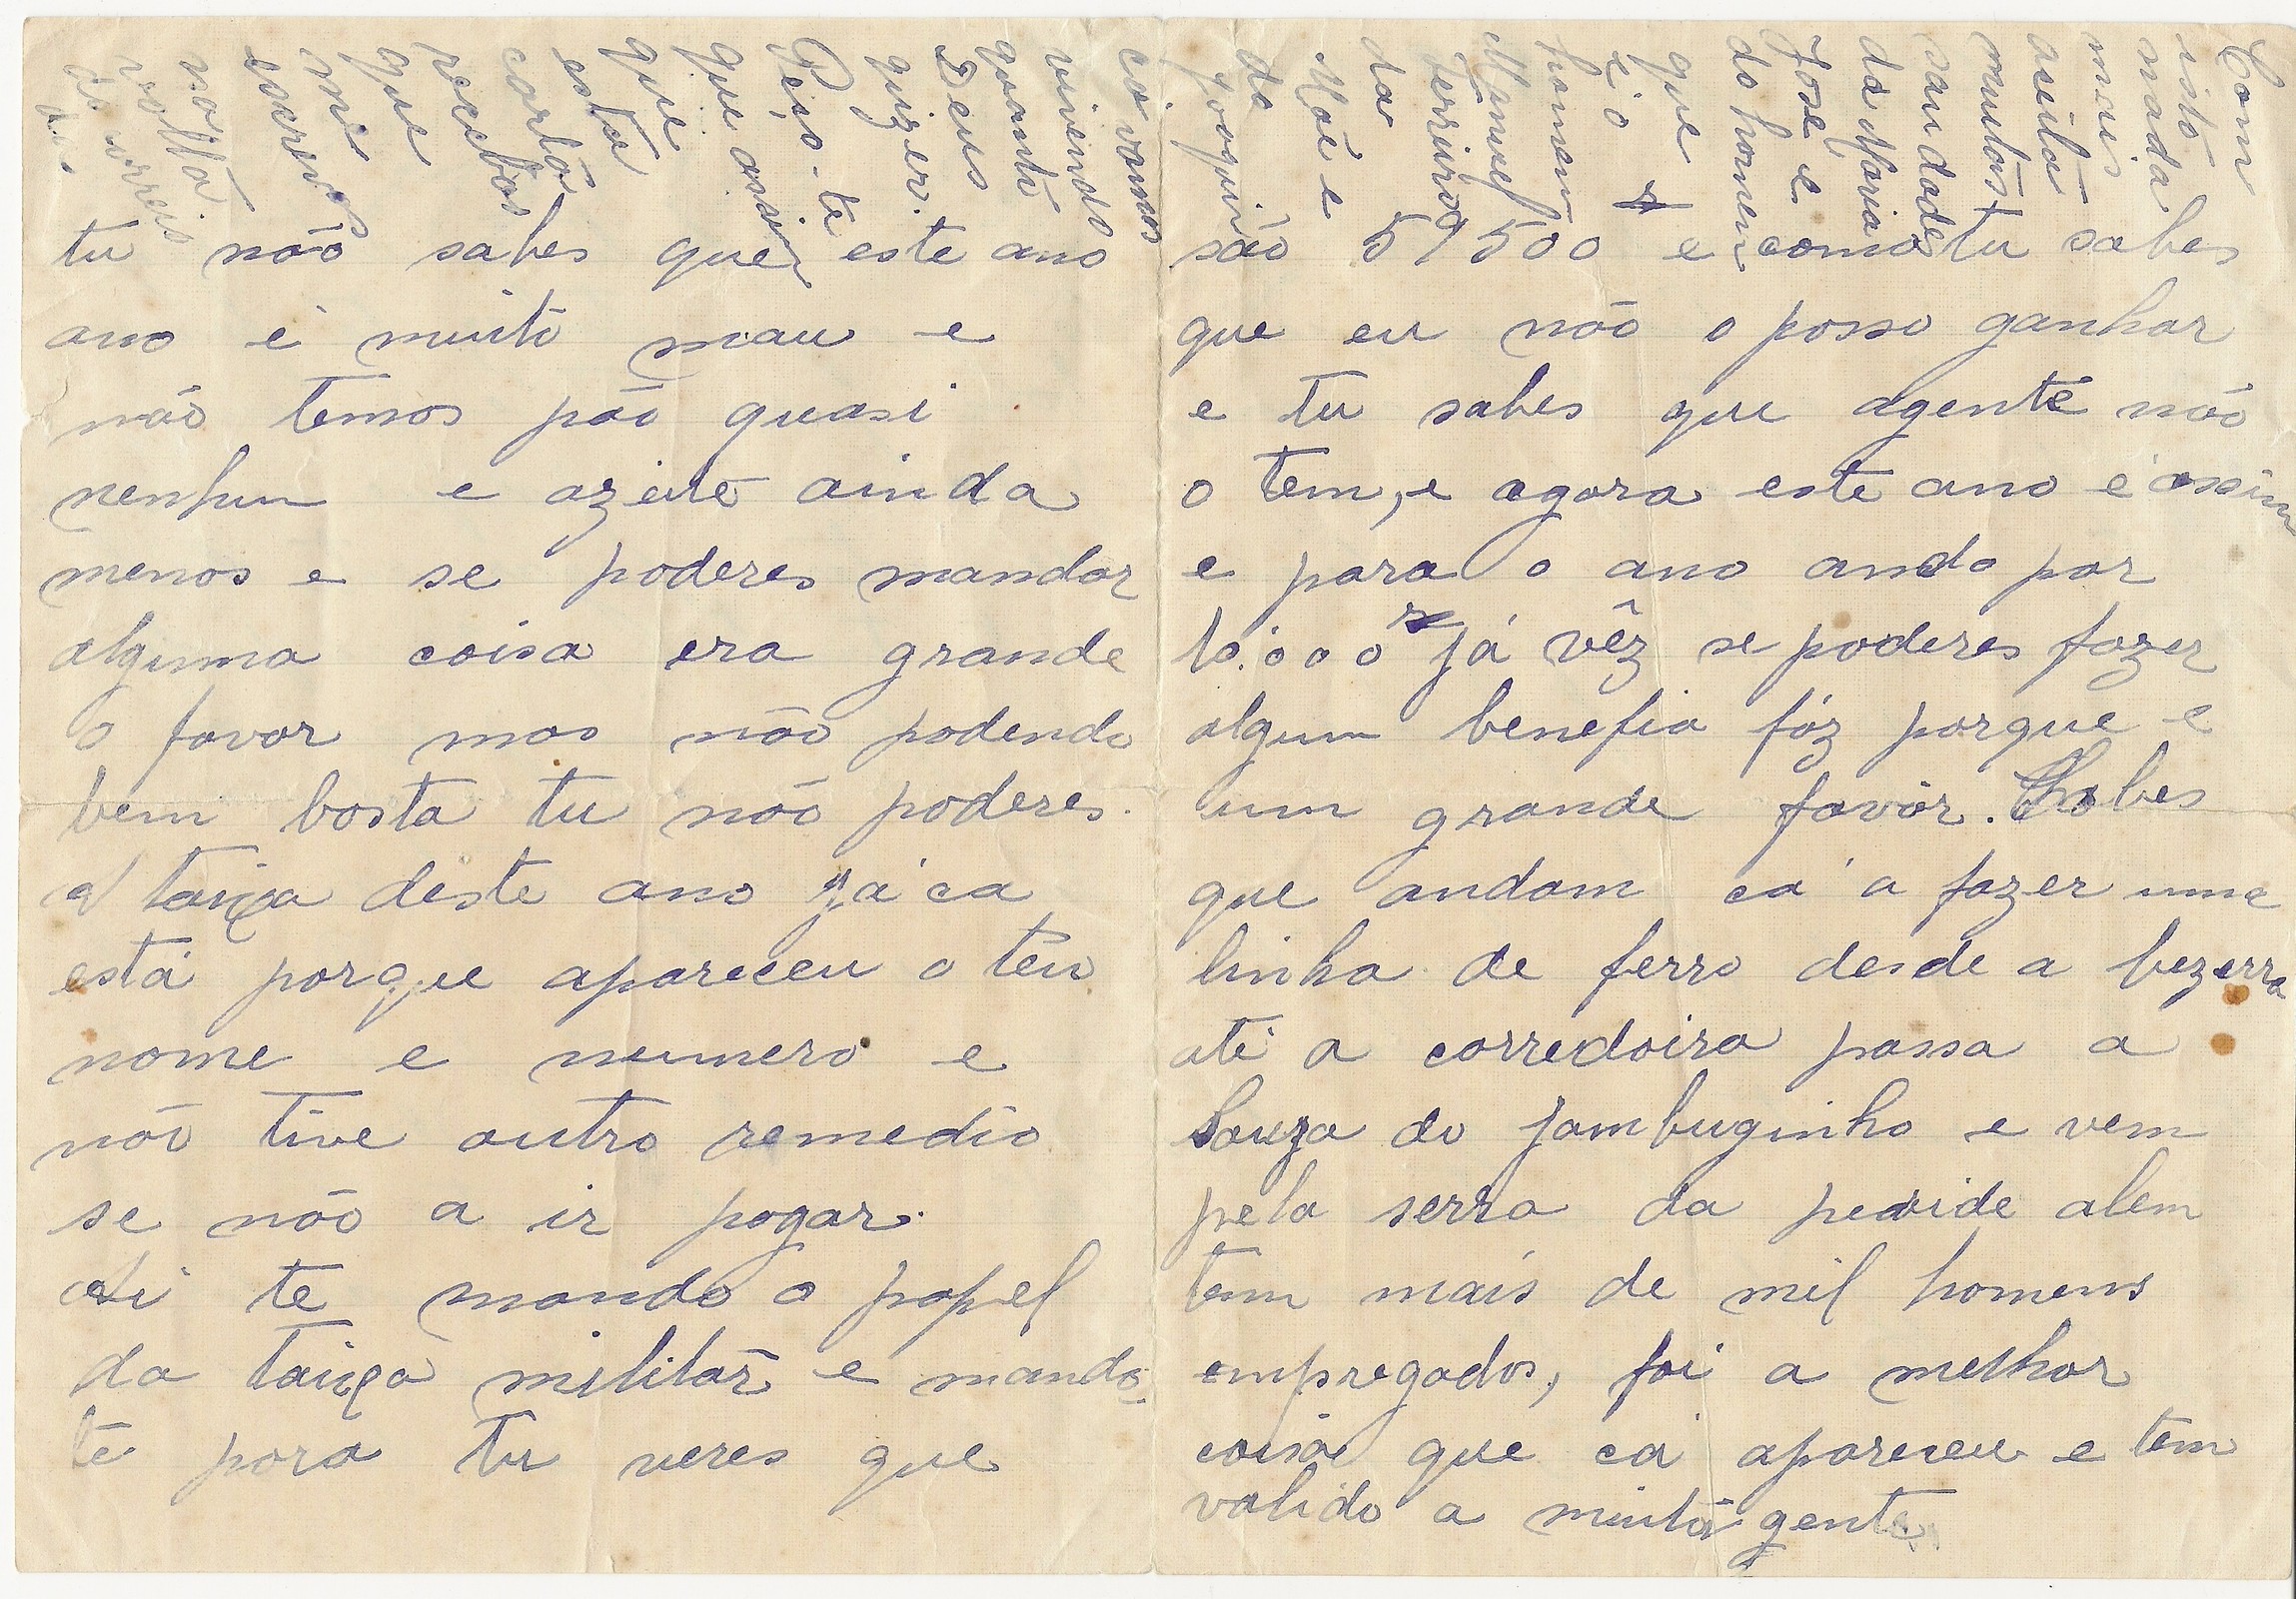 tu não sabes que este ano
ano é muito mau e
não temos pão quasi
nenhun e azeite ainda
menos e se poderes mandar
alguma coisa era grande
o favor mas não podendo
bem basta tu não poderes.
A taixa deste ano já ca
está porque apareceu o teu
nome e numero e
não tive outro remedio
se não a ir pagar.
Ai te mando o papel
da taixa militar e mando-
te para tu veres que
são 59500 e como tu sabes
que eu não o posso ganhar
e tu sabes que agente não
o tem, e agora este ano é assim
e para o ano anda por
lo.ooo já vêz se poderes fazer
algum benefia fáz porque e
um grande favôr. Sabes
que andam cá a fazer uma
linha de ferro desde a bezerra
até a corredoira passa a
Lauza do jambuginho e vem
pela serra da pevide alem
tem mais de mil homens
empregados, foi a melhor
coisa que cá apareceu e tem
valido a muita gente
Com
isto
mada
mais
aseita
muitas
saudades
da Maria
Jose e
do homem
que
é o
homem
Manuel
Ferreira
da
Mãe e
do
Joaquin
cá vamos
vivendo
quanto
Deus
quizer.
Peço-te
que assim
que
esta
carta
recebas
que
me
escrevas
na
volta
do correio